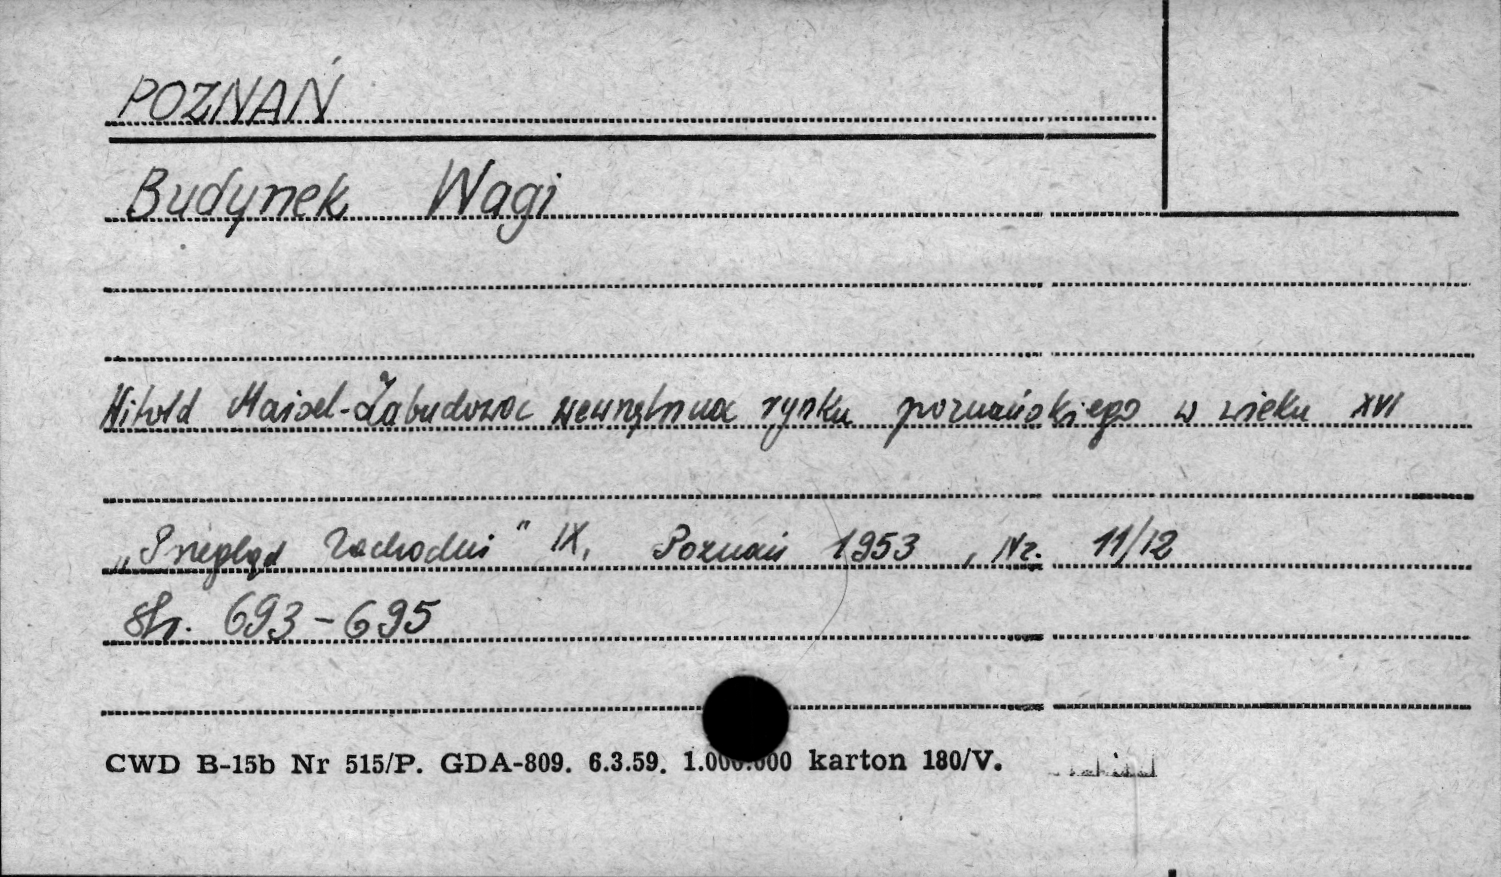 POZNAŃ
Budynek Wagi
Witold Maisel - Zabudowa wewnętrzna rynku poznańskiego w wieku XVI
„Przegląd Zachodni" IX, Poznań 1953, Nr. 11/12
Str. 693-695
CWD B-15b Nr 515/P. GDA-809. 6.3.59. 1.000.000 karton 180/V.